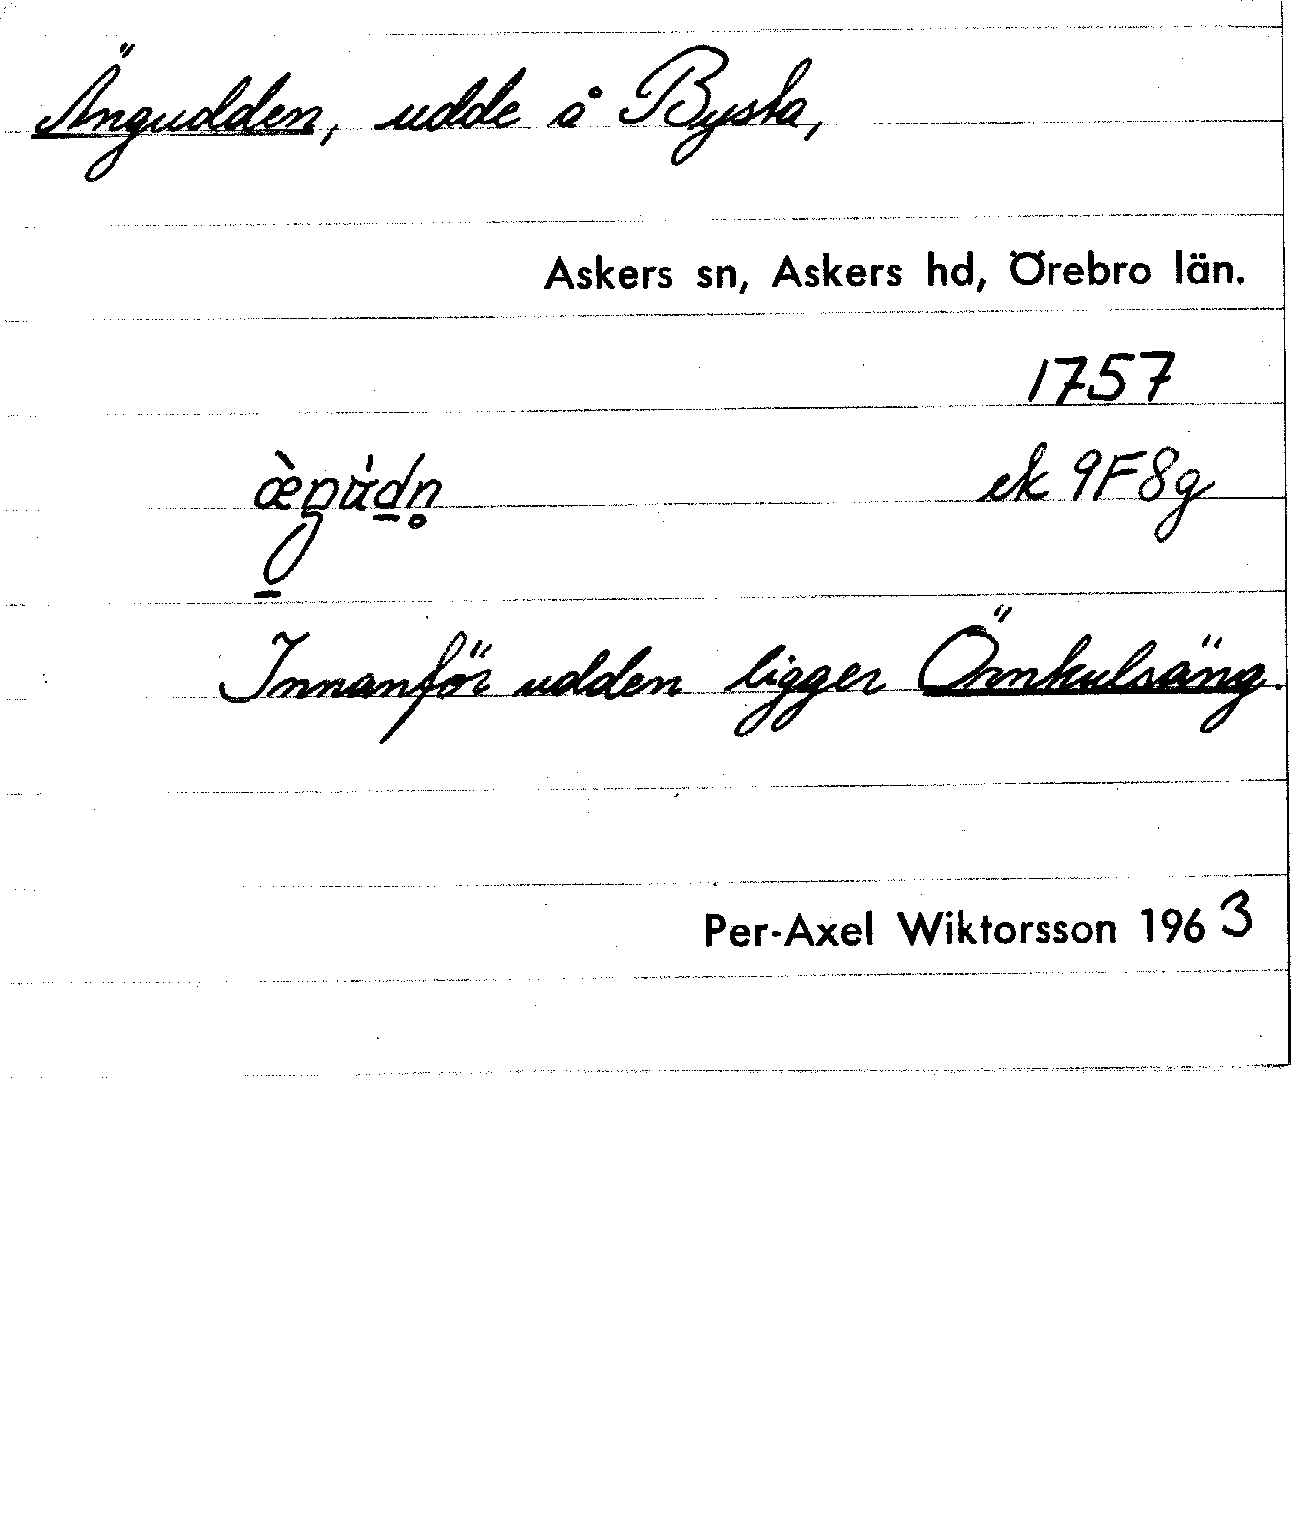 Ängudden, udde å Bysta,
Askers sn, Askers hd, Örebro län.
1757
ek 9F8g
Innanför udden ligger Örnkulsäng.
Per-Axel Wiktorsson 1963